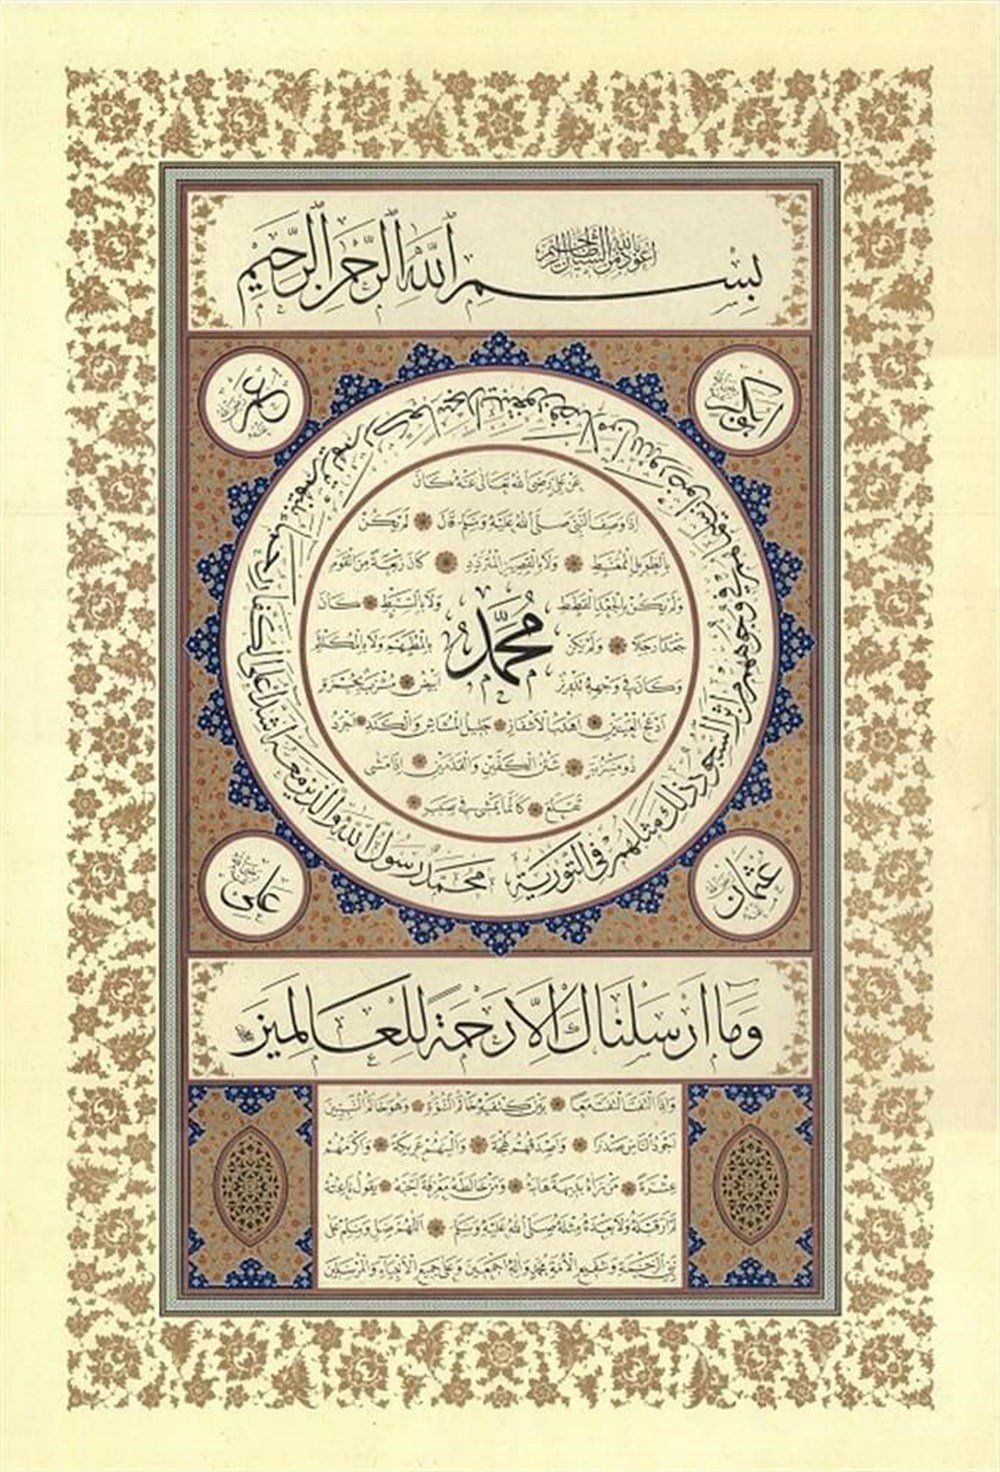 اعوذ بالله من الشيطان الرجيم
بِسْمِ اللهِ الرَّحْمنِ الرَّحِيمِ
ابوبكر
عمر
محمد رسول الله والذين معه اشداء على الكفار رحماء بينهم تريهم ركعا سجدا يبتغون فضلا من الله ورضوانا سيماهم في وجوههم من اثر السجود ذلك مثلهم في التورية
عَنْ عَلِيٍّ رَضِيَ اللهُ تَعَالَى عَنْهُ كَانَ
اِذَا وَصَفَ النَّبِيَّ صَلَّى اللهُ عَلَيْهِ وَسَلَّمَ قَالَ لَمْ يَكُنْ
بِالطَّوِيلِ الْمُمَّغِطِ وَلَا بِالْقَصِيرِ الْمُتَرَدِّدِ كَانَ رَبْعَةً مِنَ الْقَوْمِ
وَلَمْ يَكُنْ بِالْجَعْدِ الْقَطَطِ وَلَا بِالسَّبْطِ كَانَ
جَعْدًا رَجِلًا وَلَمْ يَكُنْ بِالْمُطَهَّمِ وَلَا بِالْمُكَلْثَمِ
مُحَمَّد
وَكَانَ فِي وَجْهِهِ تَدْوِيرٌ اَبْيَضُ مُشْرَبٌ بِحُمْرَةٍ
اَدْعَجُ الْعَيْنَيْنِ اَهْدَبُ الْاَشْفَارِ جَلِيلُ الْمُشَاشِ وَالْكَتَدِ اَجْرَدُ
ذُو مَسْرُبَةٍ شَثْنُ الْكَفَّيْنِ وَالْقَدَمَيْنِ اِذَا مَشَى
تَقَلَّعَ كَاَنَّمَا يَمْشِي فِي صَبَبٍ
عثمان
على
وَمَا اَرْسَلْنَاكَ اِلَّا رَحْمَةً لِلْعَالَمِينَ
وَاِذَا الْتَفَتَ الْتَفَتَ مَعًا بَيْنَ كَتِفَيْهِ خَاتَمُ النُّبُوَّةِ وَهُوَ خَاتَمُ النَّبِيِّينَ
اَجْوَدُ النَّاسِ صَدْرًا وَاَصْدَقُهُمْ لَهْجَةً وَاَلْيَنُهُمْ عَرِيكَةً وَاَكْرَمُهُمْ
عِشْرَةً مَنْ رَآهُ بَدِيهَةً هَابَهُ وَمَنْ خَالَطَهُ مَعْرِفَةً اَحَبَّهُ يَقُولُ نَاعِتُهُ
لَمْ اَرَ قَبْلَهُ وَلَا بَعْدَهُ مِثْلَهُ صَلَّى اللهُ عَلَيْهِ وَسَلَّمَ اَللّٰهُمَّ صَلِّ وَسَلِّمْ عَلَى
نَبِيِّ الرَّحْمَةِ وَشَفِيعِ الْاُمَّةِ مُحَمَّدٍ وَآلِهِ اَجْمَعِينَ وَعَلَى جَمِيعِ الْاَنْبِيَاءِ وَالْمُرْسَلِينَ